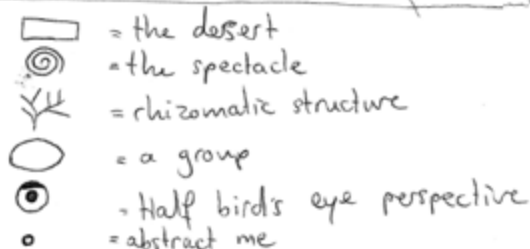 = the desert
= the spectacle
= rhizomatic structure
= a group
= Half bird's eye perspective
= abstract me